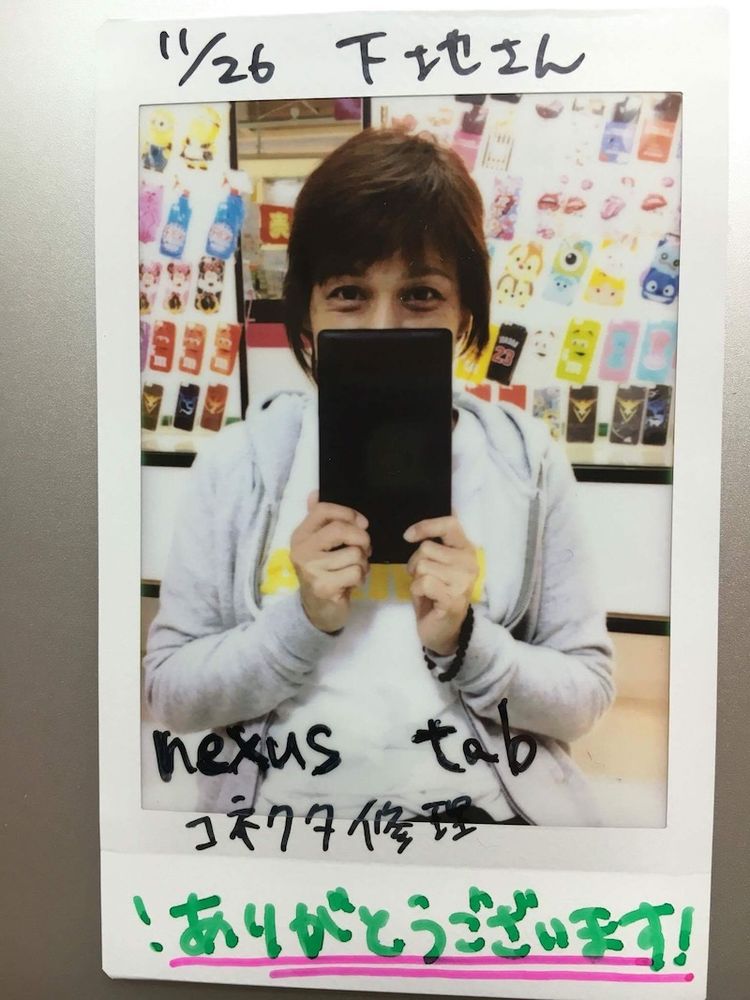 11/26 下地さん
23
nexus tab
コネクタ修理
!ありがとうございます!